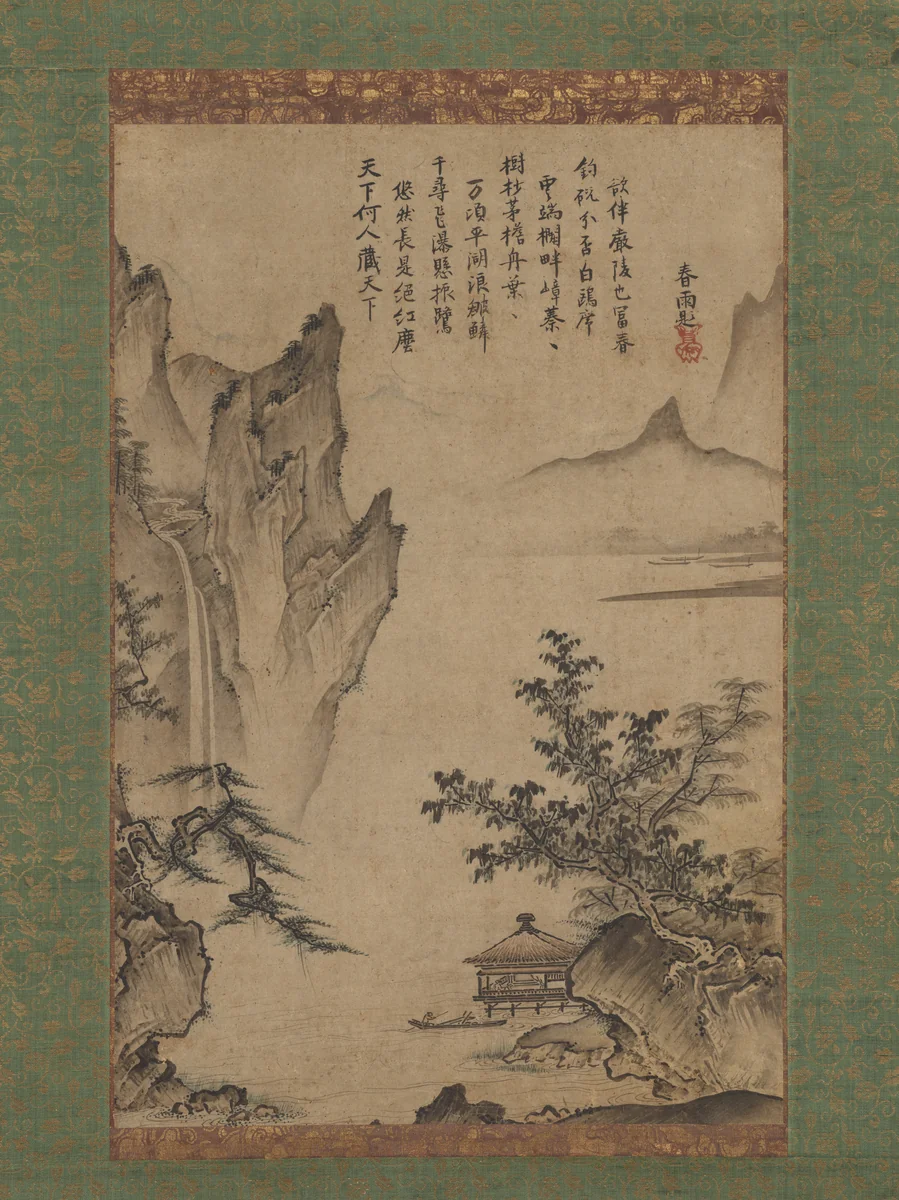 天下何人藏天下
悠然長是絕紅塵
千尋飛瀑懸振鷺
万頃平湖浪皺鱗
樹杪茅檐舟葉〻
雲端欄畔嶂蓁〻
釣磯分否白鷗席
欲伴嚴陵也冨春
春雨題